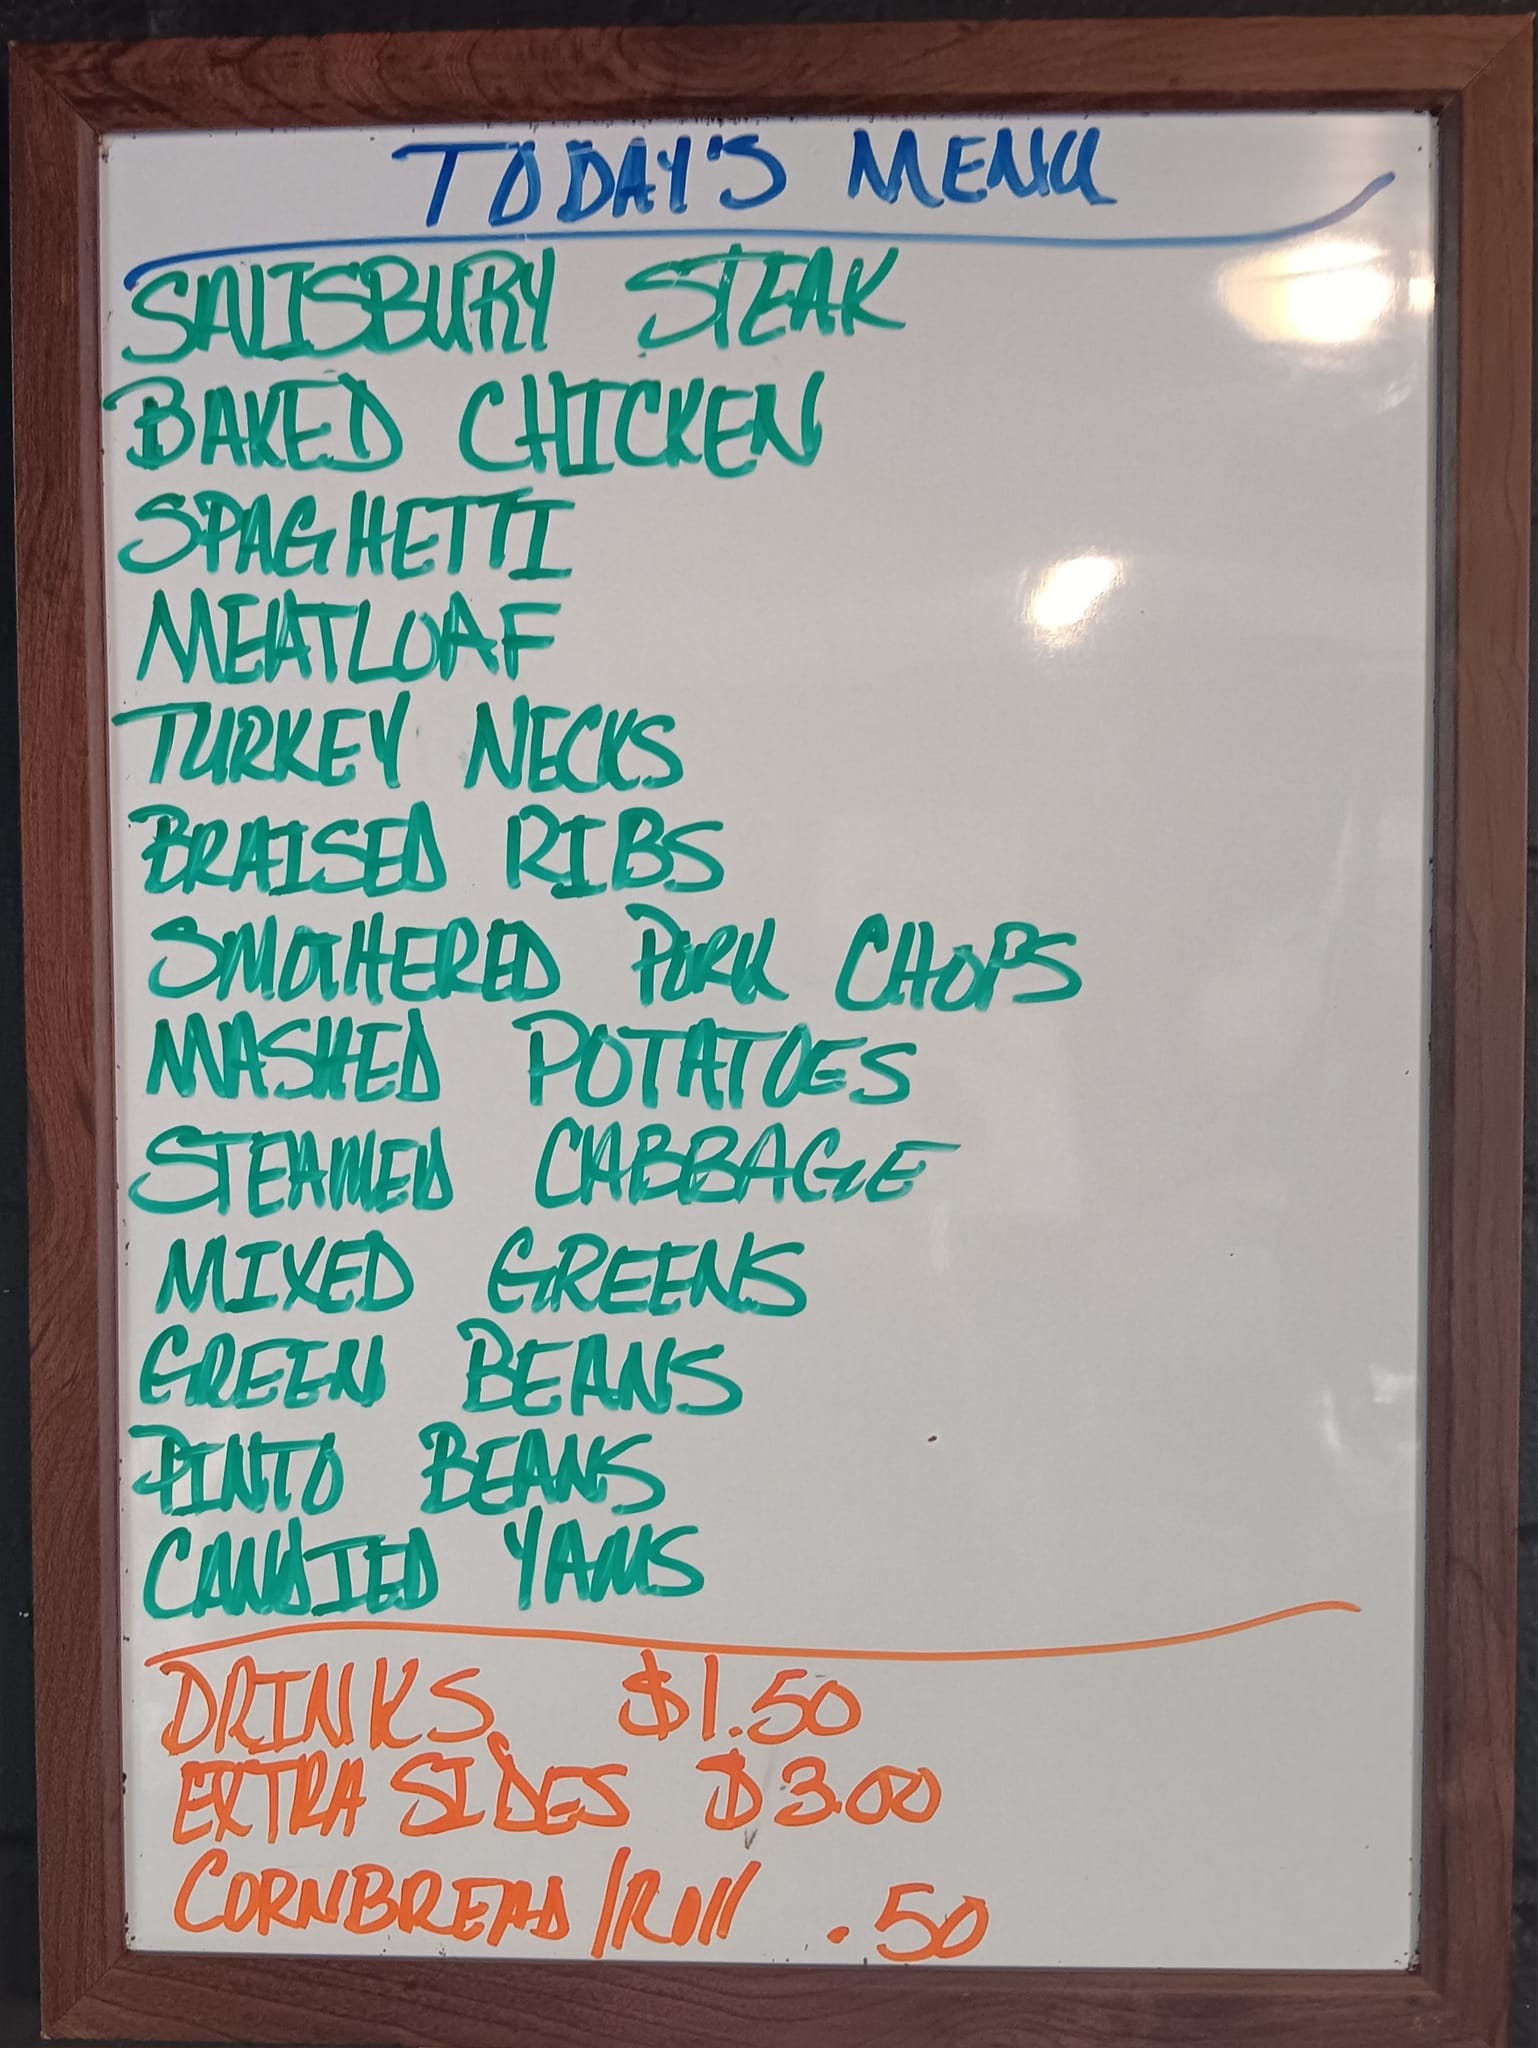 TODAY'S MENU
SALISBURY STEAK
BAKED CHICKEN
SPAGHETTI
MEATLOAF
TURKEY NECKS
BRAISED RIBS
SMOTHERED PORK CHOPS
MASHED POTATOES
STEAMED CABBAGE
MIXED GREENS
GREEN BEANS
PINTO BEANS
CANDIED YAMS
DRINKS $1.50
EXTRA SIDES $3.00
CORNBREAD/ROll .50